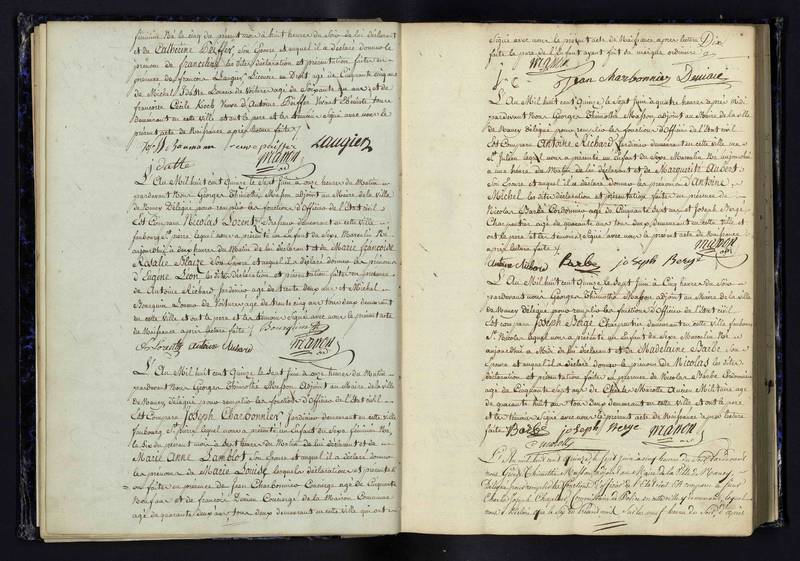 féminin Né le cinq du présent mois à huit heures du Soir de lui déclarant
et de Catherine Peiffer, Son Epouse et auquel il a déclaré donner le
prénom de francoise les dites déclaration et présentation faites en
présence de francois Laugier Licencié en Droit agé de Cinquante cinq ans
de Michel Idatte Loueur de Voitures agé de Soixante six ans, et de
francoise Cécile Koch Veuve d'Antoine Peiffer
demeurant en cette Ville et ont le pere et les témoins Signé avec nous le
présent acte de Naissance après lecture faite
Baumann Laugier
Idatte Masson
L'An Mil huit cent Quinze le Sept Juin à onze heures du Matin
pardevant Nous Georges Thimothé Masson adjoint au Maire de la Ville
de Nancy Délégué pour remplir les fonctions d'Officier de l'Etat civil
Est Comparu Nicolas Lorentz demeurant en cette Ville
faubourg St pierre lequel nous a présenté un Enfant du Sexe Masculin Né
aujourdhui à deux heures du Matin de lui déclarant et de Marie francoise
Rosalie Blaize Son Epouse et auquel il a déclaré donner les prénoms
d'Eugene Léon les dites déclaration et présentation faites en présence
de Antoine Richard Jardinier agé de trente six ans et Michel
Bourguin Loueur de Voitures agé de trente cinq ans tous deux demeurant
en cette Ville et ont le pere et les témoins Signé avec nous le présent acte
de Naissance après lecture faite
Masson
L'An Mil huit cent Quinze le Sept Juin à onze heures du Matin
pardevant Nous Georges Thimothé Masson Adjoint au Maire de la Ville
de Nancy Délégué pour remplir les fonctions d'Officier de l'Etat civil
Est Comparu Joseph Charbonnier Jardinier demeurant en cette Ville
faubourg St pierre lequel nous a présenté un Enfant du Sexe féminin Né
le Six du présent mois à Sept heures du Matin de lui déclarant et de
Marie Anne Lamblot Son Epouse et auquel il a déclaré donner
les prénoms de Marie Louise lesquelles déclaration et présentation
ont faites en présence de Jean Charbonnier Concierge agé de Cinquante
Neuf ans et de francois Demié Concierge de la Maison Commune
agé de quarante deux ans, tous deux demeurant en cette ville qui ont
Signé avec nous le présent acte de Naissance après lecture
faite le pere de l'Enfant ayant fait sa marque ordinaire
Masson
J C Jean Charbonnier Demié
L'An Mil huit cent Quinze le Sept Juin à quatre heures de près midi
pardevant Nous Georges Thimothé Masson, adjoint au Maire de la Ville
de Nancy Délégué pour remplir les fonctions d'Officier de l'Etat civil
Est Comparu Antoine Richard Jardinier demeurant en cette Ville rue
St Julien lequel nous a présenté un Enfant du Sexe Masculin Né aujourdhui
à une heure du Matin de lui déclarant et de Marguerite Aubert
Son Epouse et auquel il a déclaré donner les prénoms d'Antoine
Michel les dites déclaration et présentation faites en présence de
Nicolas Barbe Cordonnier agé de Cinquante Sept ans et Joseph Bergé
Charpentier agé de quarante ans tous deux demeurant en cette Ville et
ont le pere et les témoins Signé avec nous le présent acte de Naissance
après lecture faite
Barbe joseph Bergé Masson
L'An Mil huit cent Quinze le Sept Juin à Cinq heures du Soir
pardevant nous Georges Thimothé Masson adjoint au Maire de la Ville
de Nancy délégué pour remplir les fonctions d'Officier de l'Etat civil
Est comparu Joseph Bergé Charpentier demeurant en cette Ville faubourg
St Nicolas lequel nous a présenté un Enfant du Sexe Masculin Né
aujourdhui à Midi de lui déclarant et de Madelaine Barbe Son
Epouse et auquel il a déclaré donner le prénom de Nicolas les dites
déclaration et présentation faites en présence de Nicolas Barbe Cordonnier
agé de Cinquante Sept ans et de Charles Marotte ancien Militaire agé
de quarante huit ans tous deux demeurant en cette ville et ont le pere
et les témoins Signé avec nous le présent acte de Naissance après lecture
faite Barbe joseph Bergé Masson
L'An mil huit cent quinze le sept juin à cinq heures du Soir pardevant
nous Georges Thimothé Masson adjoint au Maire de la Ville de Nancy
Délégué pour remplir les fonctions d'officier de l'Etat civil Est comparu le Sieur
Charles Joseph Commissaire de Police en cette ville y demeurant lequel
nous a déclaré que le Six du présent mois sur les neuf heures du Soir